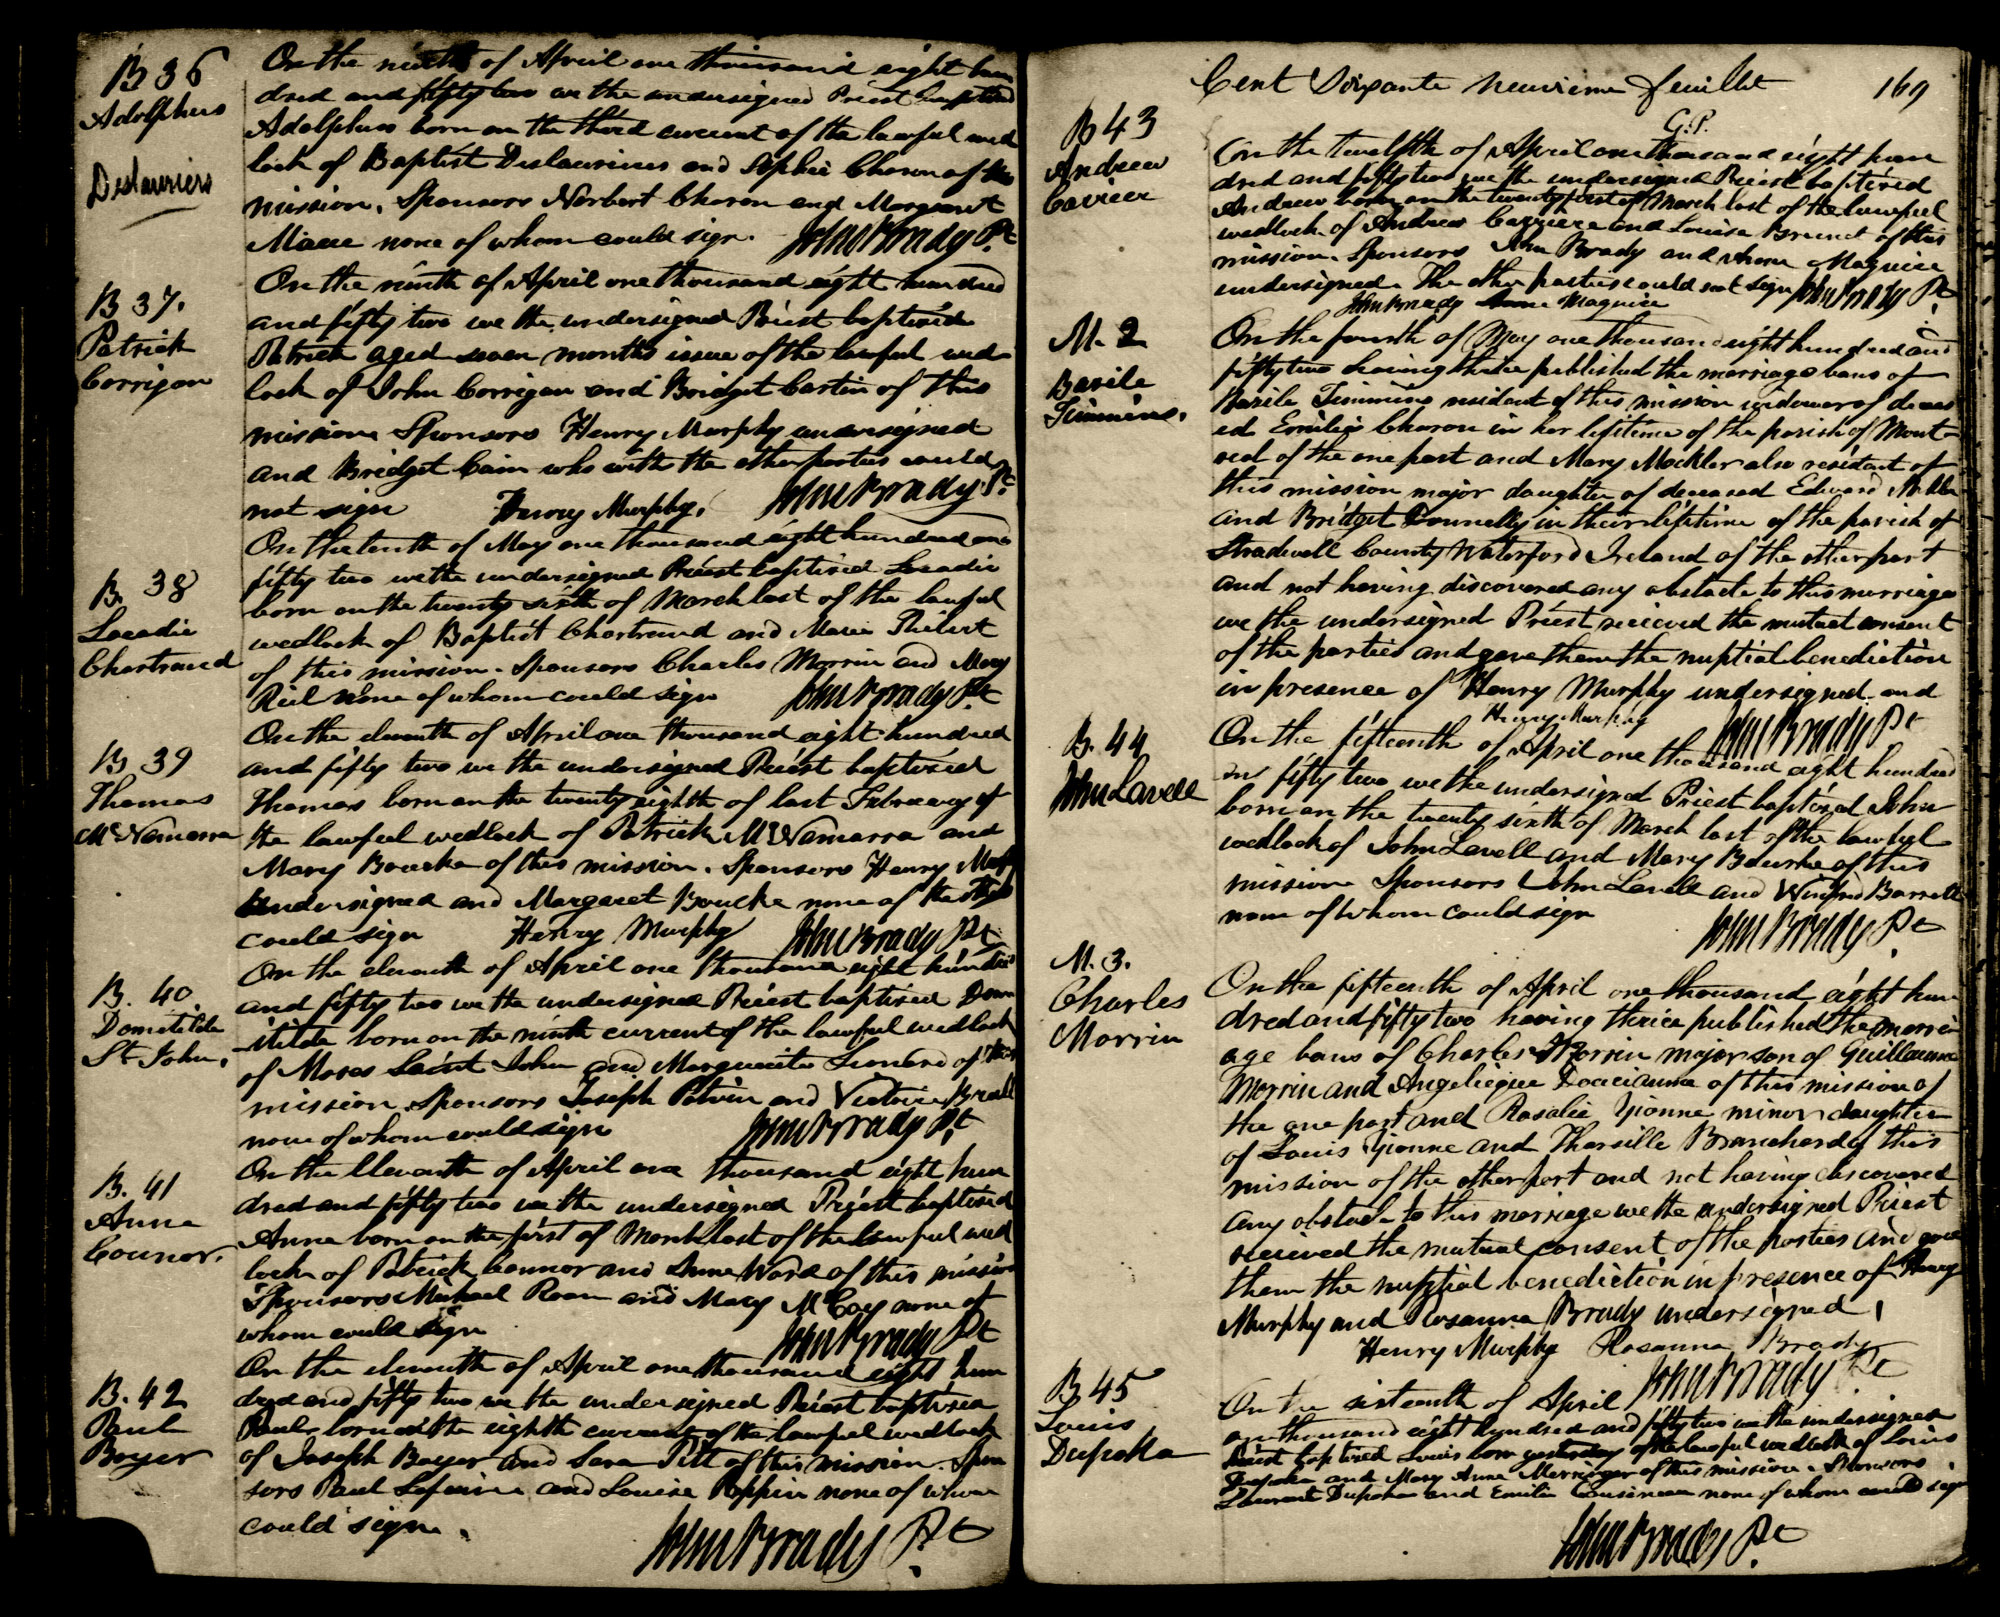 B 36
Adolphus
Deslauriers
On the ninth of April one thousand eight hun
dred and fifty two we the undersigned Priest baptised
Adolphus born on the third current of the lawful wed
lock of Baptist Deslauriers and Sophie Charon of this
mission. Sponsors Norbert Charon and Margaret
none of whom could sign. John Brady Pt
B 37.
Patrick
Corrigan
On the ninth of April one thousand eight hundred
and fifty two we the undersigned Priest baptised
Patrick aged seven months issue of the lawful wed
lock of John Corrigan and Bridget Castin of this
mission Sponsors Henry Murphy undersigned
and Bridget Cain who with the other parties could
not sign Henry Murphy. John Brady Pt
B. 38
Leocadie
Chartrand
On the tenth of May one thousand eight hundred and
fifty two we the undersigned Priest baptised Leocadie
born on the twenty sixth of March last of the lawful
wedlock of Baptist Chartrand and Marie
of this mission. Sponsors Charles Morrin and Mary
Riel none of whom could sign John Brady Pt
B 39
Thomas
McNamarra
On the eleventh of April one thousand eight hundred
and fifty two we the undersigned Priest baptised
Thomas born on the twenty eighth of last February of
the lawful wedlock of Patrick McNamarra and
Mary Bourke of this mission. Sponsors Henry Murphy
undersigned and Margaret Bourke none of the others
could sign Henry Murphy John Brady Pt
B. 40
Domitilde
St John.
On the eleventh of April one thousand eight hundred
and fifty two we the undersigned Priest baptised Dom
itilde born on the ninth current of the lawful wedlock
of Moses Saint John and Marguerite Leonard of this
mission. Sponsors Joseph Potvin and Victoire
none of whom could sign John Brady Pt
B. 41
Anne
Connor.
On the Eleventh of April one thousand eight hun
dred and fifty two we the undersigned Priest baptised
Anne born on the first of March last of the lawful wed
lock of Patrick Connor and Anne Ward of this mission
Sponsors Michael Roan and Mary McCoy none of
whom could sign John Brady Pt
B. 42
Paul
Boyer
On the eleventh of April one thousand eight hun
dred and fifty two we the undersigned Priest baptised
Paul born on the eighth current of the lawful wedlock
of Joseph Boyer and Sara Pitt of this mission. Spon
sors Paul and Louise Poppin none of whom
could sign.
John Brady Pt
Cent Soixante neuvieme feuillet 169
G.P.
B 43
Andrew
Carriere
On the twelfth of April one thousand eight hun
dred and fifty two we the undersigned Priest baptised
Andrew born on the twenty first of March last of the lawful
wedlock of Andrew Carriere and Louise Brunet of this
mission. Sponsors John Brady and Anne Maguire
undersigned. The other parties could not sign John Brady Pt
John Brady Anne Maguire
M. 2
Basile
Timmins.
On the fourth of May one thousand eight hundred and
fifty two having thrice published the marriage bans of
Basile Timmins resident of this mission widower of deceas
ed Emilie Charon in her lifetime of the parish of Mont
real of the one part and Mary Mockler also resident of
this mission major daughter of deceased Edward Mockler
and Bridget Donnelly in their lifetime of the parish of
Stradwell County Waterford Ireland of the other part
and not having discovered any obstacle to this marriage
we the undersigned Priest received the mutual consent
of the parties and gave them the nuptial benediction
in presence of Henry Murphy undersigned and
Henry Murphy John Brady Pt
B. 44
John Lavell
On the fifteenth of April one thousand eight hundred
and fifty two we the undersigned Priest baptised John
born on the twenty sixth of March last of the lawful
wedlock of John Lavell and Mary Bourke of this
mission Sponsors John Lavell and Winifred Barrett
none of whom could sign
John Brady Pt
M. 3.
Charles
Morrin
On the fifteenth of April one thousand eight hun
dred and fifty two having thrice published the marri
age bans of Charles Morrin major son of Guillaume
Morrin and Angelique of this mission of
the one part and Rosalie Yionne minor daughter
of Louis Yionne and Tharsille Branchard of this
mission of the other part and not having discovered
any obstacle to this marriage we the undersigned Priest
received the mutual consent of the parties and gave
them the nuptial benediction in presence of Henry
Murphy and Rosanna Brady undersigned.
Henry Murphy Rosanna Brady
John Brady Pt
B 45
Louis
Dupoka
On the sixteenth of April
one thousand eight hundred and fifty two we the undersigned
Priest baptised Louis born yesterday of the lawful wedlock of Louis
Dupoka and Mary Anne of this mission. Sponsors
Laurent Dupoka and Emilie Cousineau none of whom could sign
John Brady Pt